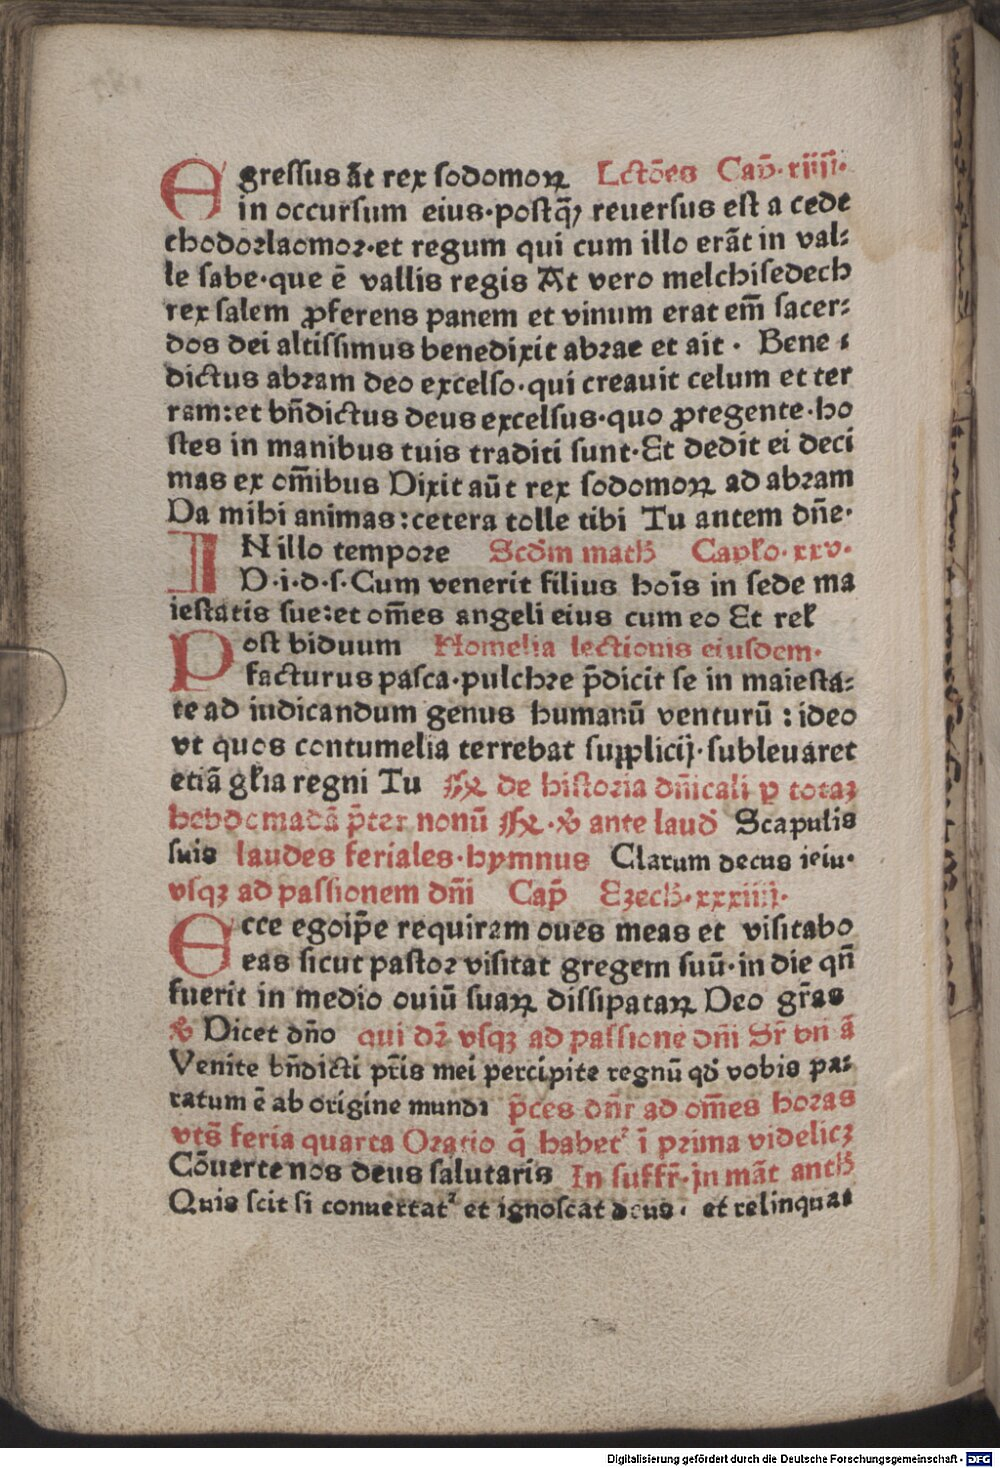 Egressus āt rex sodomoꝝ Lctōes Cap̄·xiiij·
in occursum eius·postq̄ꝫ reuersus est a cede
chodorlaomor·et regum qui cum illo erāt in val⸗
le sabe·que ē vallis regis At vero melchisedech
rex salem ꝓferens panem et vinum erat em̄ sacer⸗
dos dei altissimus benedixit abrae et ait · Bene ⸗
dictus abram deo excelso·qui creauit celum et ter
ram:et bn̄dictus deus excelsus·quo ꝓtegente·ho
stes in manibus tuis traditi sunt·Et dedit ei deci
mas ex om̄ibus Dixit aūt rex sodomoꝝ ad abram
Da mihi animas:cetera tolle tibi Tu antem dn̄e·
IN illo tempore Scd̄m math̄ Capl̄o·xxv·
D·i·d·s·Cum venerit filius hoīs in sede ma
iestatis sue:et om̄es angeli eius cum eo Et rel̄
Post biduum Homelia lectionis eiusdem·
facturus pasca·pulchre p̄dicit se in maiesta⸗
te ad iudicandum genus humanū venturū : ideo
vt quos contumelia terrebat supplicij·subleuaret
etiā gl̄ia regni Tu ℟ de historia dn̄icali p totaꝫ
hebdomadā p̄ter nonū ℟·℣ ante laud̄ Scapulis
suis laudes feriales·hymnus Clarum decus ieiu·
vsqꝫ ad passionem dn̄i Cap̄ Ezech̄·xxxiiij·
Ecce egoip̄e requiram oues meas et visitabo
eas sicut pastor visitat gregem suū·in die qn̄
fuerit in medio ouiū suaꝝ dissipataꝝ Deo gr̄as
℣ Dicet dn̄o qui dr̄ vsqꝫ ad passione dn̄i Sr̄ vn̄ ā
Venite bn̄dicti pr̄is mei percipite regnū qd̄ vobis pa⸗
ratum ē ab origine mundi p̄ces dn̄r ad om̄es horas
vts̄ feria quarta Oratio q̄ habet᷑ ī prima videlicꝫ
Cōuerte nos deus salutaris In suffr̄·jn māt anth̄
Quis scit si conuertat᷑ et ignoscat deus· et relinquat
Digitalisierung gefördert durch die Deutsche Forschungsgemeinschaft - DFG